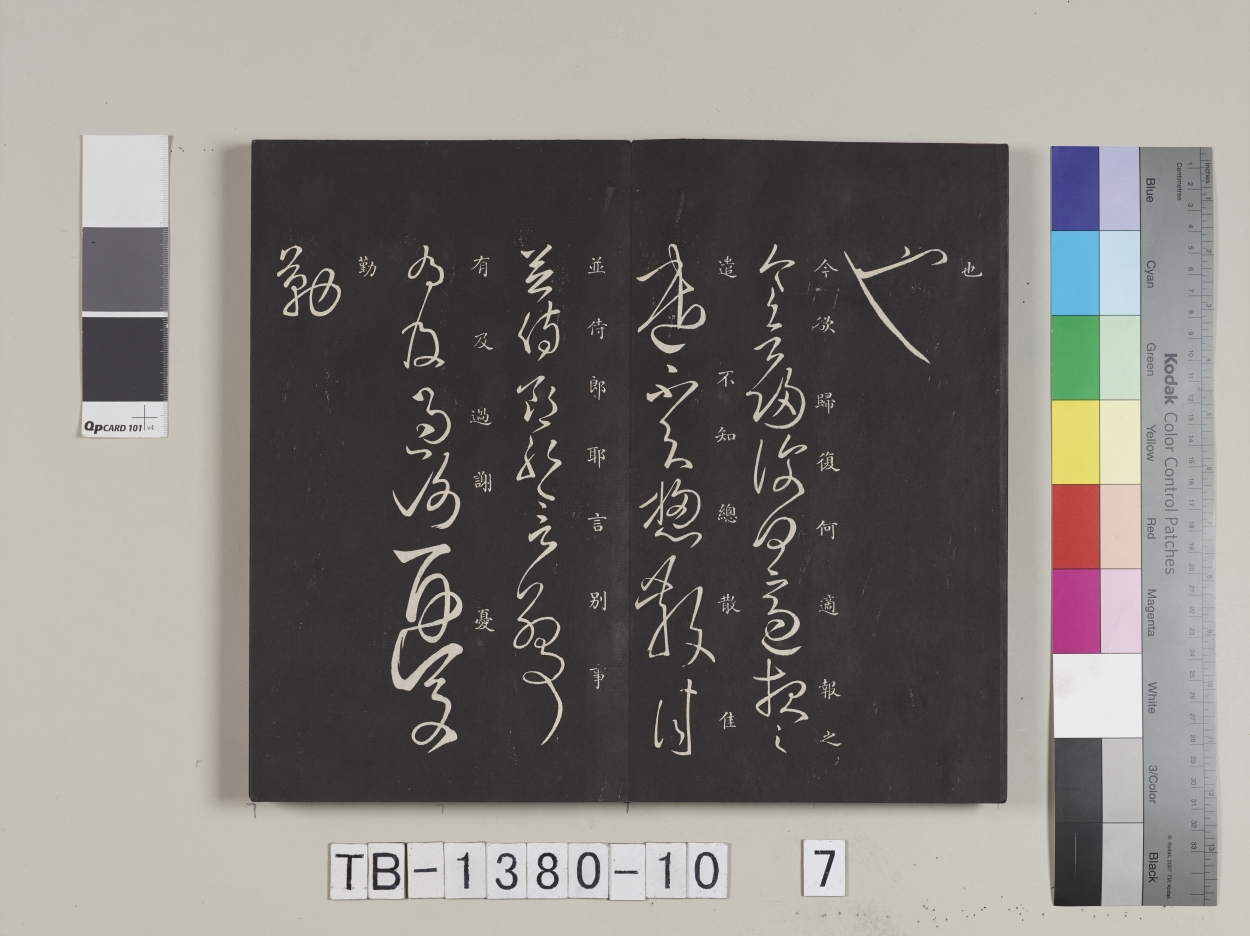 也
今欲歸復何適報之
遣不知總散佳
並侍郎耶言別事
有及過謝憂
勤
QpCARD 101 v4
Kodak Color Control Patches
Inches
Centimetres
Blue
Cyan
Green
Yellow
Red
Magenta
White
3/Color
Black
TB-1380-10
7